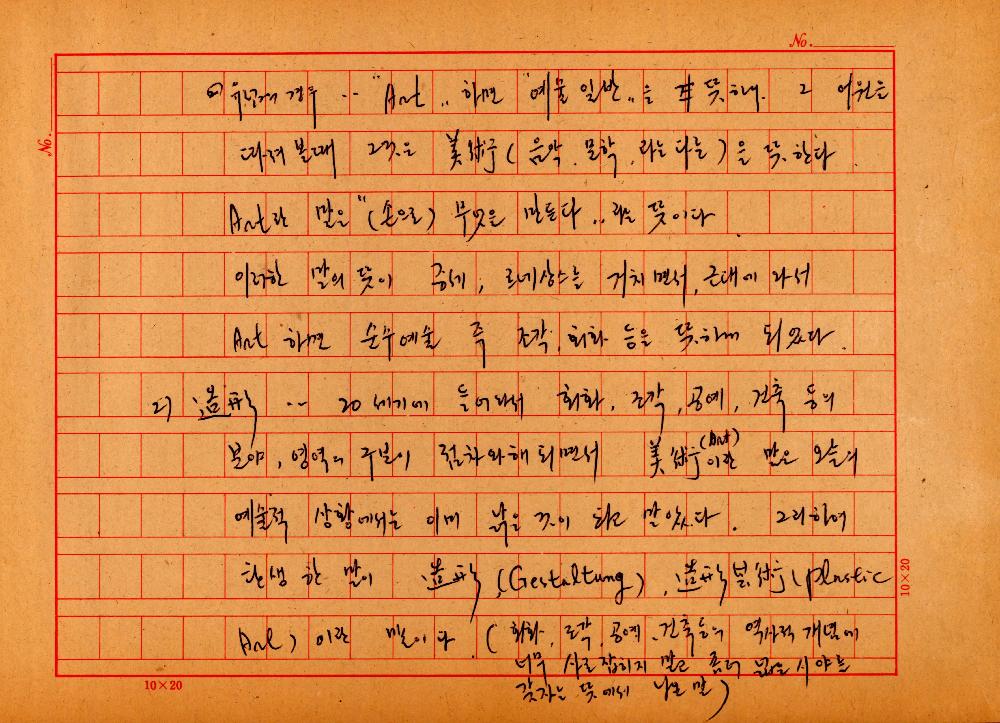 No.
No.
경우 … "Art" 하면 "예술 일반"을 뜻하며. 그 어원을
따져 볼때 그것은 美術(음악, 문학, 과는 다름)을 뜻한다
Art란 말은 "(손으로) 무엇을 만든다"라는 뜻이다
이러한 말의 뜻이 중세, 르네상스를 거치면서, 근대에 와서
Art 하면 순수예술 즉 조각, 회화 등을 뜻하게 되었다.
2) 造形 … 20세기에 들어와서 회화, 조각, 공예, 건축 등의
분야, 영역의 구분이 점차 와해 되면서 美術(Art)이란 말은 오늘의
예술적 상황에서는 이미 낡은 것이 되고 말았다. 그리하여
탄생한 말이 造形(Gestaltung), 造形芸術(Plastic
Art)이란 말이다 (회화, 조각, 공예, 건축등의 역사적 개념에
너무 사로잡히지 말고 좀더 넓은 시야를
갖자는 뜻에서 나온 말)
10×20
10×20